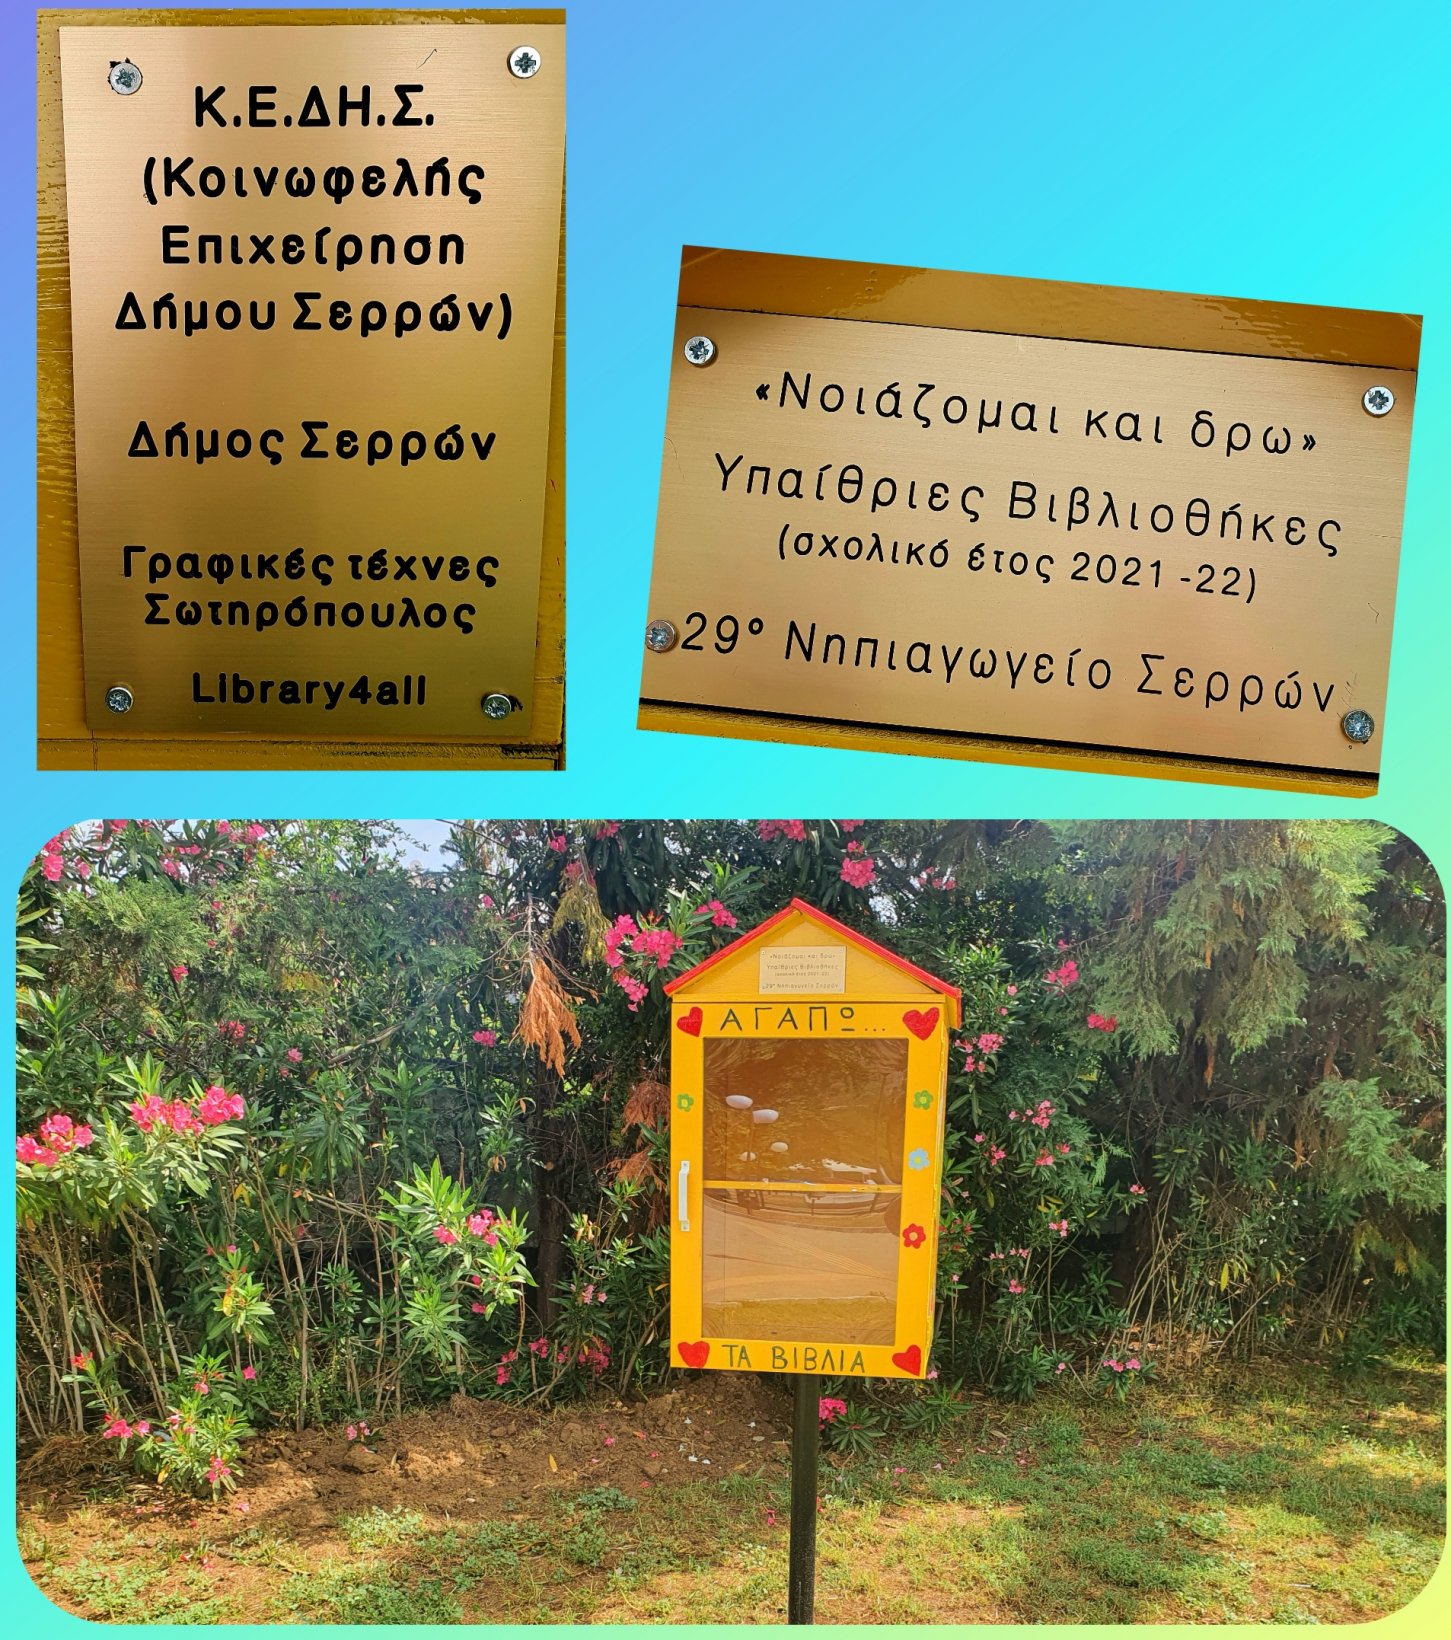 Κ.Ε.ΔΗ.Σ.
(Κοινωφελής
Επιχείρηση
Δήμου Σερρών)
Δήμος Σερρών
Γραφικές τέχνες
Σωτηρόπουλος
Library4all
«Νοιάζομαι και δρω»
Υπαίθριες Βιβλιοθήκες
(σχολικό έτος 2021 -22)
29° Νηπιαγωγείο Σερρών
«Νοιάζομαι και δρω»
Υπαίθριες Βιβλιοθήκες
(σχολικό έτος 2021 -22)
29° Νηπιαγωγείο Σερρών
ΑΓΑΠΩ...
ΤΑ ΒΙΒΛΙΑ